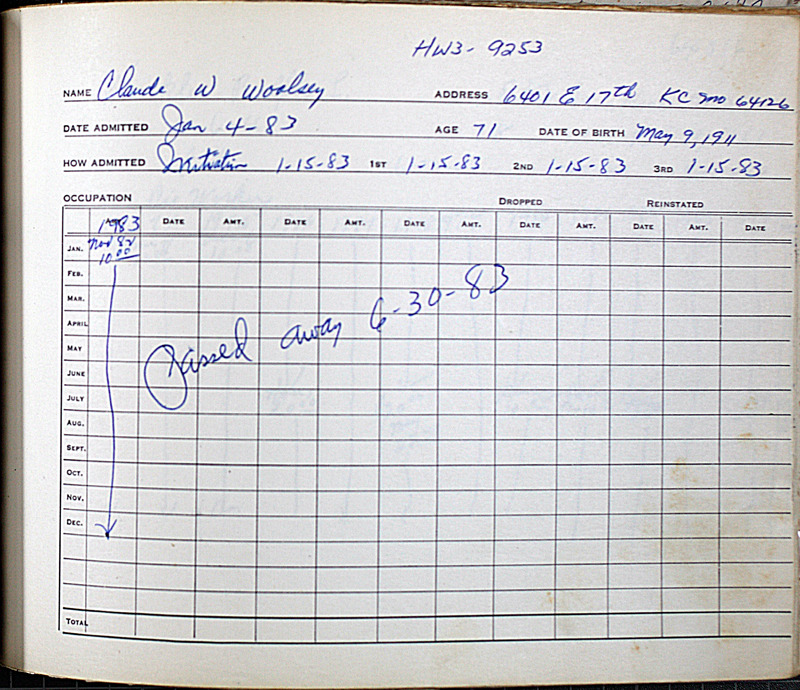 HW3-9253
NAME Claude W Woolsey ADDRESS 6401 E 17th KC Mo 64126
DATE ADMITTED Jan 4-83 AGE 71 DATE OF BIRTH May 9, 1911
HOW ADMITTED Initiation 1-15-83 1ST 1-15-83 2ND 1-15-83 3RD 1-15-83
OCCUPATION DROPPED REINSTATED
1983 DATE AMT. DATE AMT. DATE AMT. DATE AMT. DATE AMT. DATE
JAN. 10.00
FEB.
MAR.
Passed away 6-30-83
APRIL
MAY
JUNE
JULY
AUG.
SEPT.
OCT.
NOV.
DEC.
TOTAL